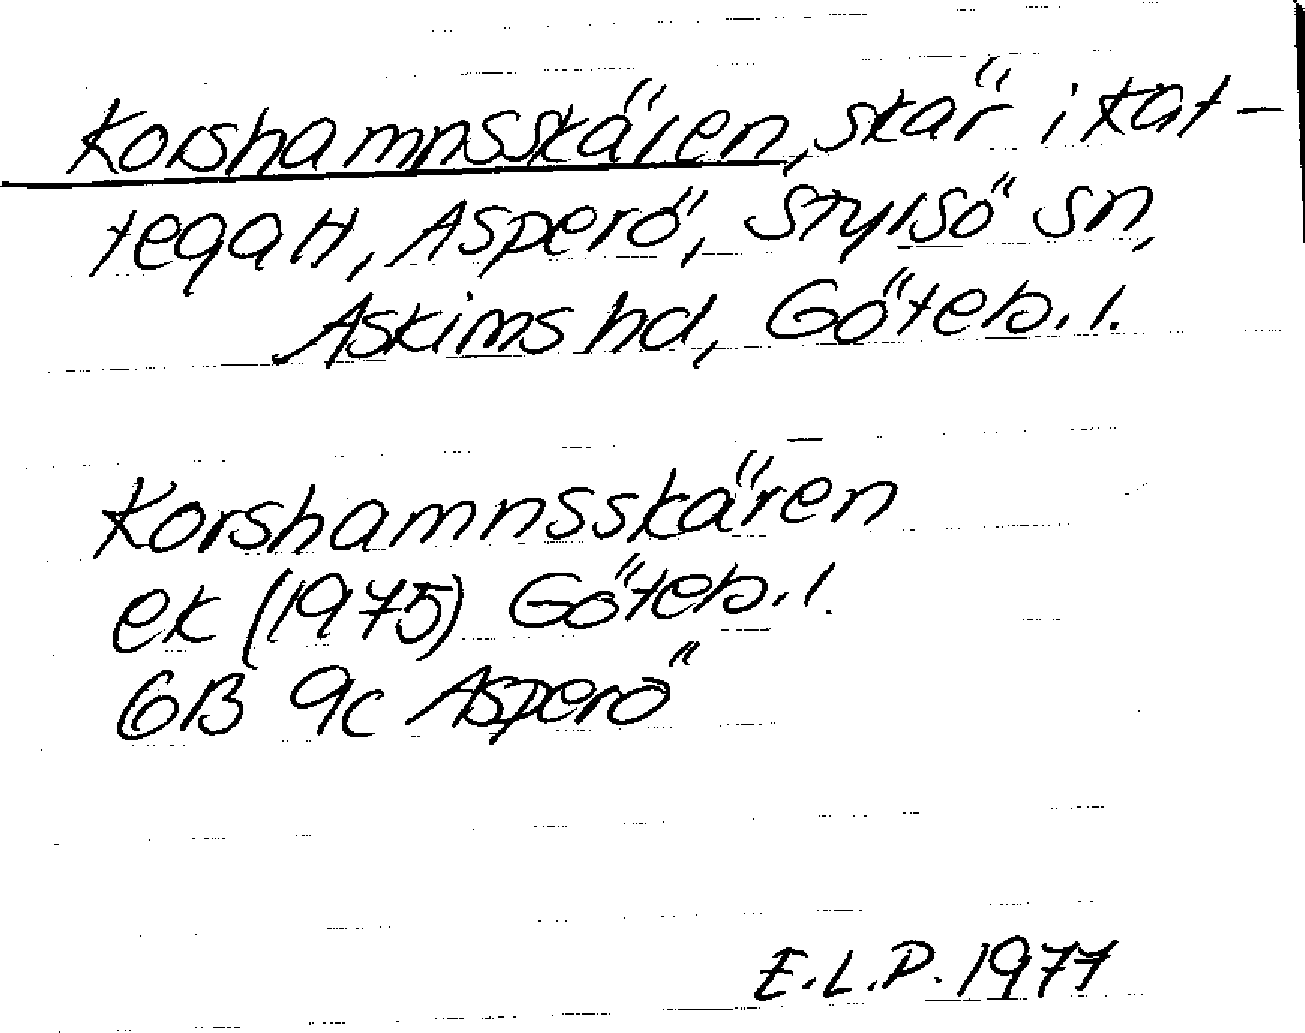 Korshamnsskären, skär i Kat-
tegatt, Asperö, Styrsö sn,
Askims hd, Göteb. l.
Korshamnsskären
ek (1975) Göteb. l.
6B 9c Asperö
E.L.P. 1977